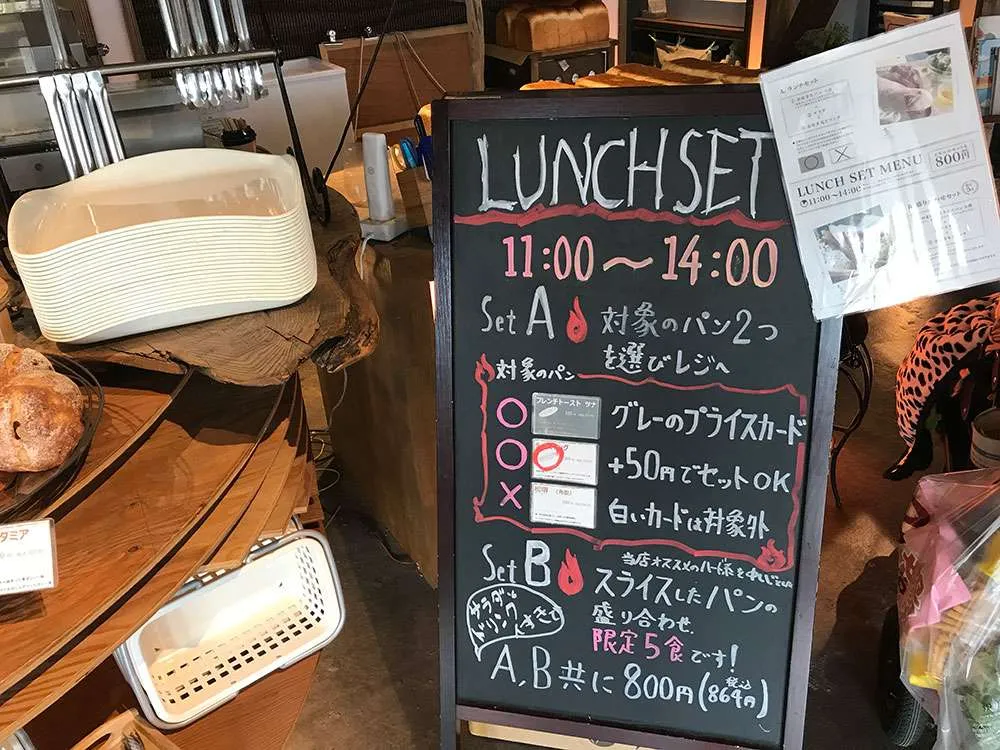 LUNCH SET
11:00〜14:00
Set A 対象のパン2つ
を選びレジへ
対象のパン
フレンチトースト ツナ
○ グレーのプライスカード
○ +50円でセットOK
× 白いカードは対象外
Set B 当店オススメのハード系を中心に
スライスしたパンの
盛り合わせ
限定5食です!
サラダ
ドリンク
A,B共に800円(税込864円)
ランチセット
LUNCH SET MENU 800円
11:00〜14:00
タミア